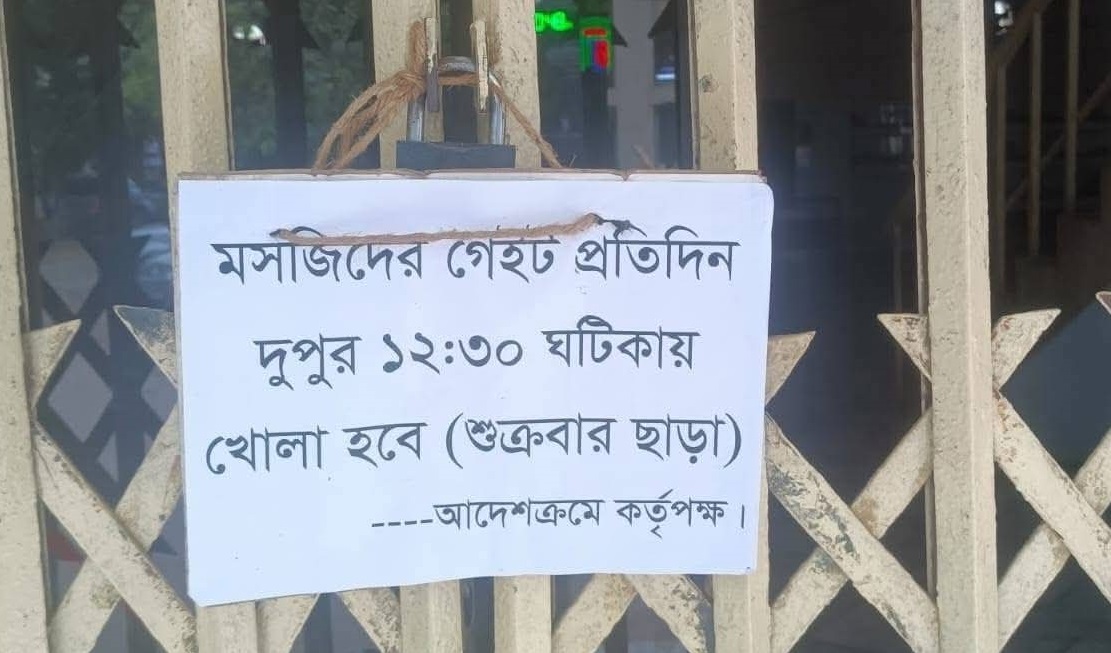 মসজিদের গেইট প্রতিদিন
দুপুর ১২:৩০ ঘটিকায়
খোলা হবে (শুক্রবার ছাড়া)
----আদেশক্রমে কর্তৃপক্ষ।